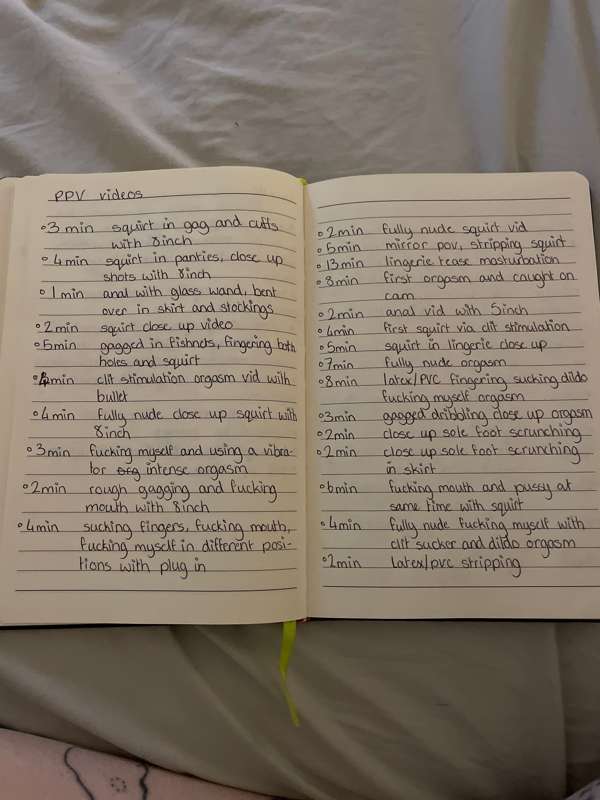 PPV videos
3min squirt in gag and cuffs
with 8inch
4min squirt in panties, close up
shots with 8inch
1min anal with glass wand, bent
over in skirt and stockings
2min squirt close up video
5min gagged in fishnets, fingering both
holes and squirt
4min clit stimulation orgasm vid with
bullet
4min fully nude close up squirt with
8inch
3min fucking myself and using a vibra-
tor intense orgasm
2min rough gagging and fucking
mouth with 8inch
4min sucking fingers, fucking mouth,
fucking myself in different posi-
tions with plug in
2min fully nude squirt vid
5min mirror pov, stripping squirt
13min lingerie tease masturbation
8min first orgasm and caught on
cam
2min anal vid with 5inch
4min first squirt via clit stimulation
5min squirt in lingerie close up
7min fully nude orgasm
8min latex/PVC fingering sucking dildo
fucking myself orgasm
3min gagged dribbling close up orgasm
2min close up sole foot scrunching
2min close up sole foot scrunching
in skirt
6min fucking mouth and pussy at
same time with squirt
4min fully nude fucking myself with
clit sucker and dildo orgasm
2min latex/pvc stripping